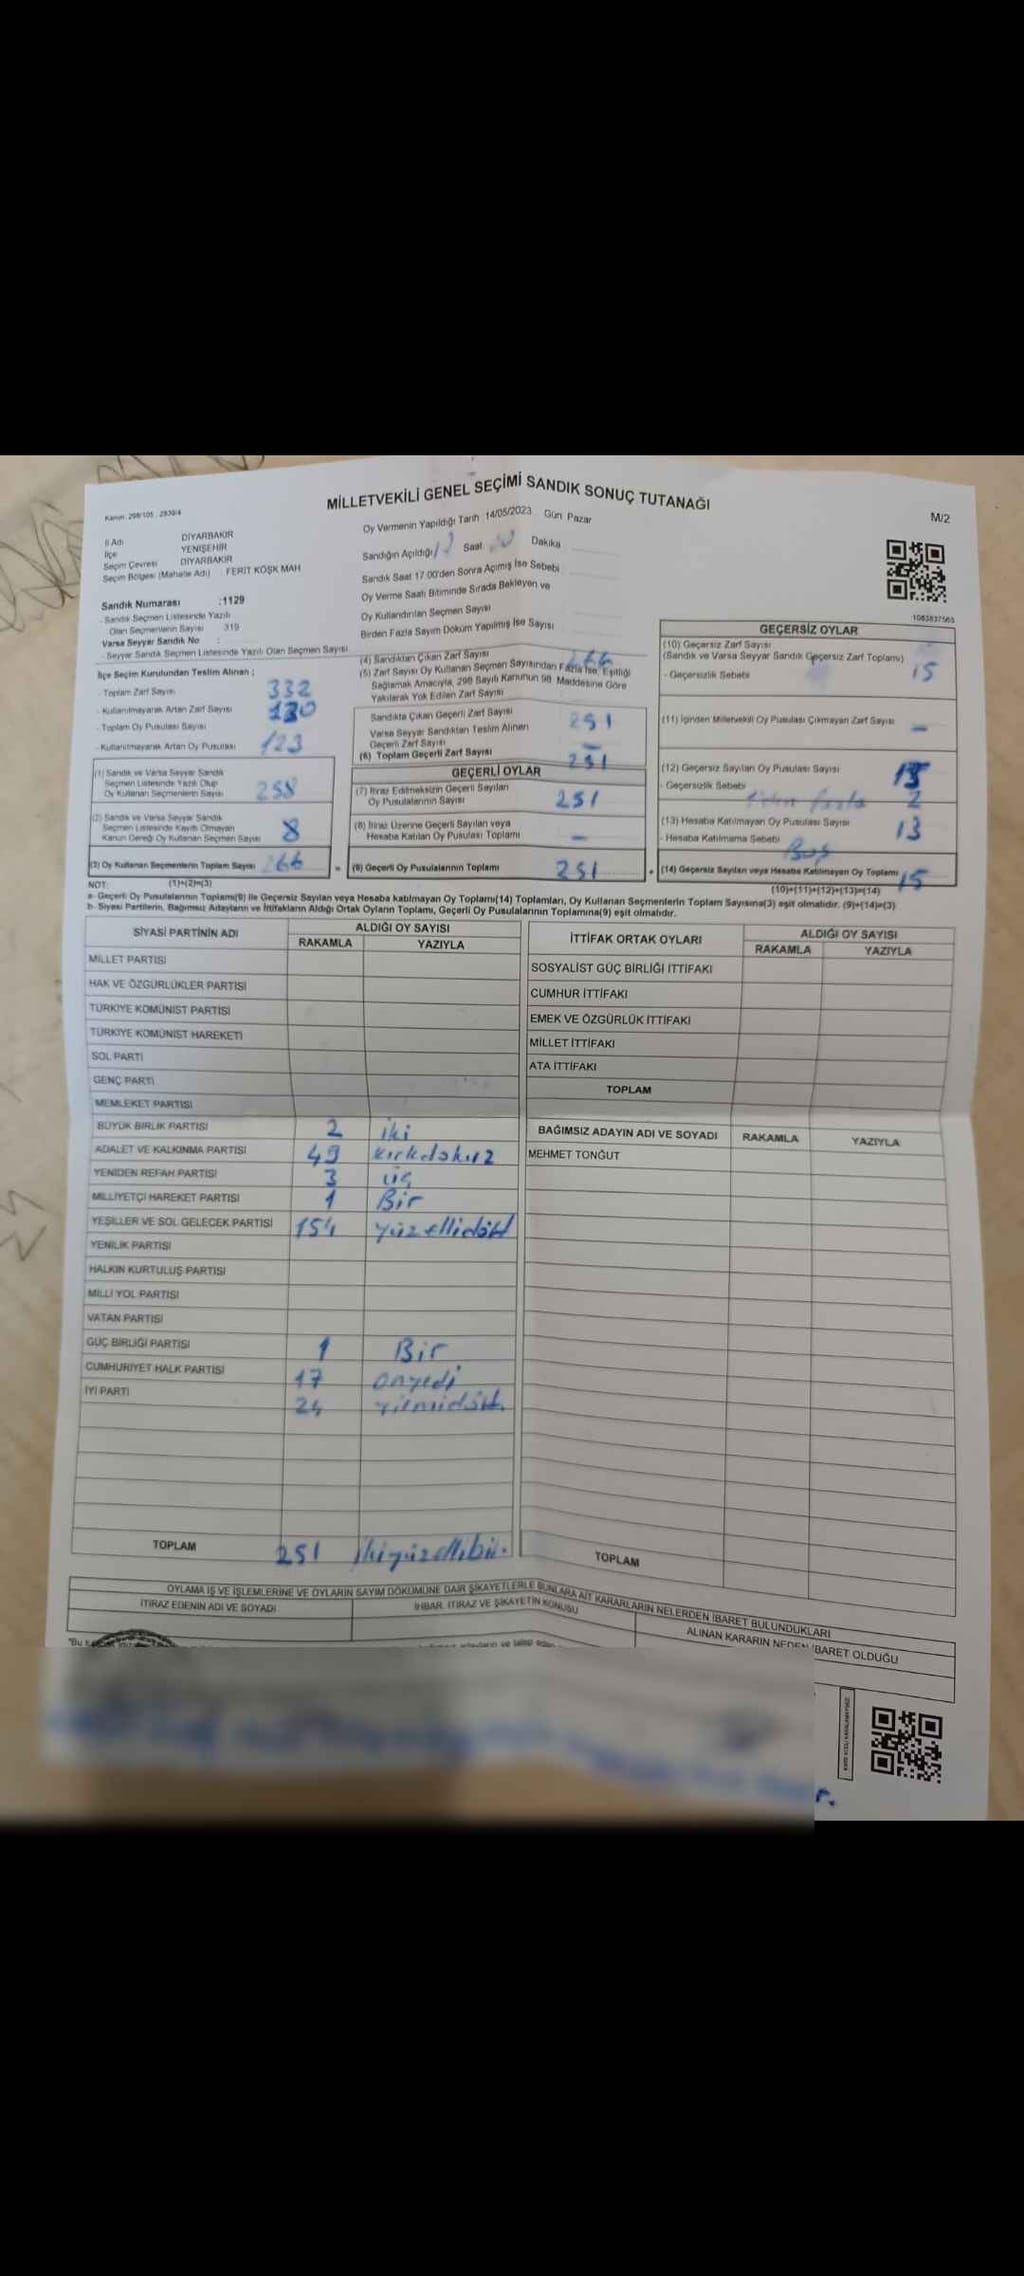 Kanun: 298/105, 2839/4
MİLLETVEKİLİ GENEL SEÇİMİ SANDIK SONUÇ TUTANAĞI
M/2
İl Adı DİYARBAKIR
İlçe YENİŞEHİR
Seçim Çevresi DİYARBAKIR
Seçim Bölgesi (Mahalle Adı) FERİT KÖŞK MAH
Oy Vermenin Yapıldığı Tarih 14/05/2023 Gün Pazar
Sandığın Açıldığı Saat Dakika
Sandık Saat 17.00'den Sonra Açımış İse Sebebi
Oy Verme Saati Bitiminde Sırada Bekleyen ve
Oy Kullandırılan Seçmen Sayısı
Birden Fazla Sayım Döküm Yapılmış İse Sayısı
1083837565
Sandık Numarası :1129
- Sandık Seçmen Listesinde Yazılı
Olan Seçmenlerin Sayısı 319
Varsa Seyyar Sandık No :
- Seyyar Sandık Seçmen Listesinde Yazılı Olan Seçmen Sayısı
İlçe Seçim Kurulundan Teslim Alınan ;
- Toplam Zarf Sayısı 332
- Kullanılmayarak Artan Zarf Sayısı 130
- Toplam Oy Pusulası Sayısı
- Kullanılmayarak Artan Oy Pusulası 123
(1) Sandık ve Varsa Seyyar Sandık
Seçmen Listesinde Yazılı Olup
Oy Kullanan Seçmenlerin Sayısı 258
(2) Sandık ve Varsa Seyyar Sandık
Seçmen Listesinde Kayıtlı Olmayan
Kanun Gereği Oy Kullanan Seçmen Sayısı 8
(3) Oy Kullanan Seçmenlerin Toplam Sayısı 266
(1)+(2)=(3)
(4) Sandıktan Çıkan Zarf Sayısı 266
(5) Zarf Sayısı Oy Kullanan Seçmen Sayısından Fazla İse, Eşitliği
Sağlamak Amacıyla, 298 Sayılı Kanunun 98. Maddesine Göre
Yakılarak Yok Edilen Zarf Sayısı
Sandıkta Çıkan Geçerli Zarf Sayısı 251
Varsa Seyyar Sandıktan Teslim Alınan
Geçerli Zarf Sayısı –
(6) Toplam Geçerli Zarf Sayısı 251
GEÇERLİ OYLAR
(7) İtiraz Edilmeksizin Geçerli Sayılan
Oy Pusulalarının Sayısı 251
(8) İtiraz Üzerine Geçerli Sayılan veya
Hesaba Katılan Oy Pusulası Toplamı –
= (9) Geçerli Oy Pusulalarının Toplamı 251
GEÇERSİZ OYLAR
(10) Geçersiz Zarf Sayısı
(Sandık ve Varsa Seyyar Sandık Geçersiz Zarf Toplamı)
- Geçersizlik Sebebi 15
(11) İçinden Milletvekili Oy Pusulası Çıkmayan Zarf Sayısı –
(12) Geçersiz Sayılan Oy Pusulası Sayısı
- Geçersizlik Sebebi
fazla 2
(13) Hesaba Katılmayan Oy Pusulası Sayısı 13
- Hesaba Katılmama Sebebi Boş
+ (14) Geçersiz Sayılan veya Hesaba Katılmayan Oy Toplamı 15
(10)+(11)+(12)+(13)=(14)
NOT:
a- Geçerli Oy Pusulalarının Toplamı(9) ile Geçersiz Sayılan veya Hesaba katılmayan Oy Toplamı(14) Toplamları, Oy Kullanan Seçmenlerin Toplam Sayısına(3) eşit olmalıdır. (9)+(14)=(3)
b- Siyasi Partilerin, Bağımsız Adayların ve İttifakların Aldığı Ortak Oyların Toplamı, Geçerli Oy Pusulalarının Toplamına(9) eşit olmalıdır.
SİYASİ PARTİNİN ADI ALDIĞI OY SAYISI
RAKAMLA YAZIYLA
MİLLET PARTİSİ
HAK VE ÖZGÜRLÜKLER PARTİSİ
TÜRKİYE KOMÜNİST PARTİSİ
TÜRKİYE KOMÜNİST HAREKETİ
SOL PARTİ
GENÇ PARTİ
MEMLEKET PARTİSİ
BÜYÜK BİRLİK PARTİSİ 2 iki
ADALET VE KALKINMA PARTİSİ 49 kırkdokuz
YENİDEN REFAH PARTİSİ 3 üç
MİLLİYETÇİ HAREKET PARTİSİ 1 Bir
YEŞİLLER VE SOL GELECEK PARTİSİ 154 yüzellidört
YENİLİK PARTİSİ
HALKIN KURTULUŞ PARTİSİ
MİLLİ YOL PARTİSİ
VATAN PARTİSİ
GÜÇ BİRLİĞİ PARTİSİ 1 Bir
CUMHURİYET HALK PARTİSİ 17 onyedi
İYİ PARTİ 24 yirmidört.
TOPLAM 251 ikiyüzellibir.
İTTİFAK ORTAK OYLARI ALDIĞI OY SAYISI
RAKAMLA YAZIYLA
SOSYALİST GÜÇ BİRLİĞİ İTTİFAKI
CUMHUR İTTİFAKI
EMEK VE ÖZGÜRLÜK İTTİFAKI
MİLLET İTTİFAKI
ATA İTTİFAKI
TOPLAM
BAĞIMSIZ ADAYIN ADI VE SOYADI RAKAMLA YAZIYLA
MEHMET TONĞUT
TOPLAM
OYLAMA İŞ VE İŞLEMLERİNE VE OYLARIN SAYIM DÖKÜMÜNE DAİR ŞİKAYETLERLE BUNLARA AİT KARARLARIN NELERDEN İBARET BULUNDUKLARI
İTİRAZ EDENİN ADI VE SOYADI İHBAR, İTİRAZ VE ŞİKAYETİN KONUSU ALINAN KARARIN NEDEN İBARET OLDUĞU